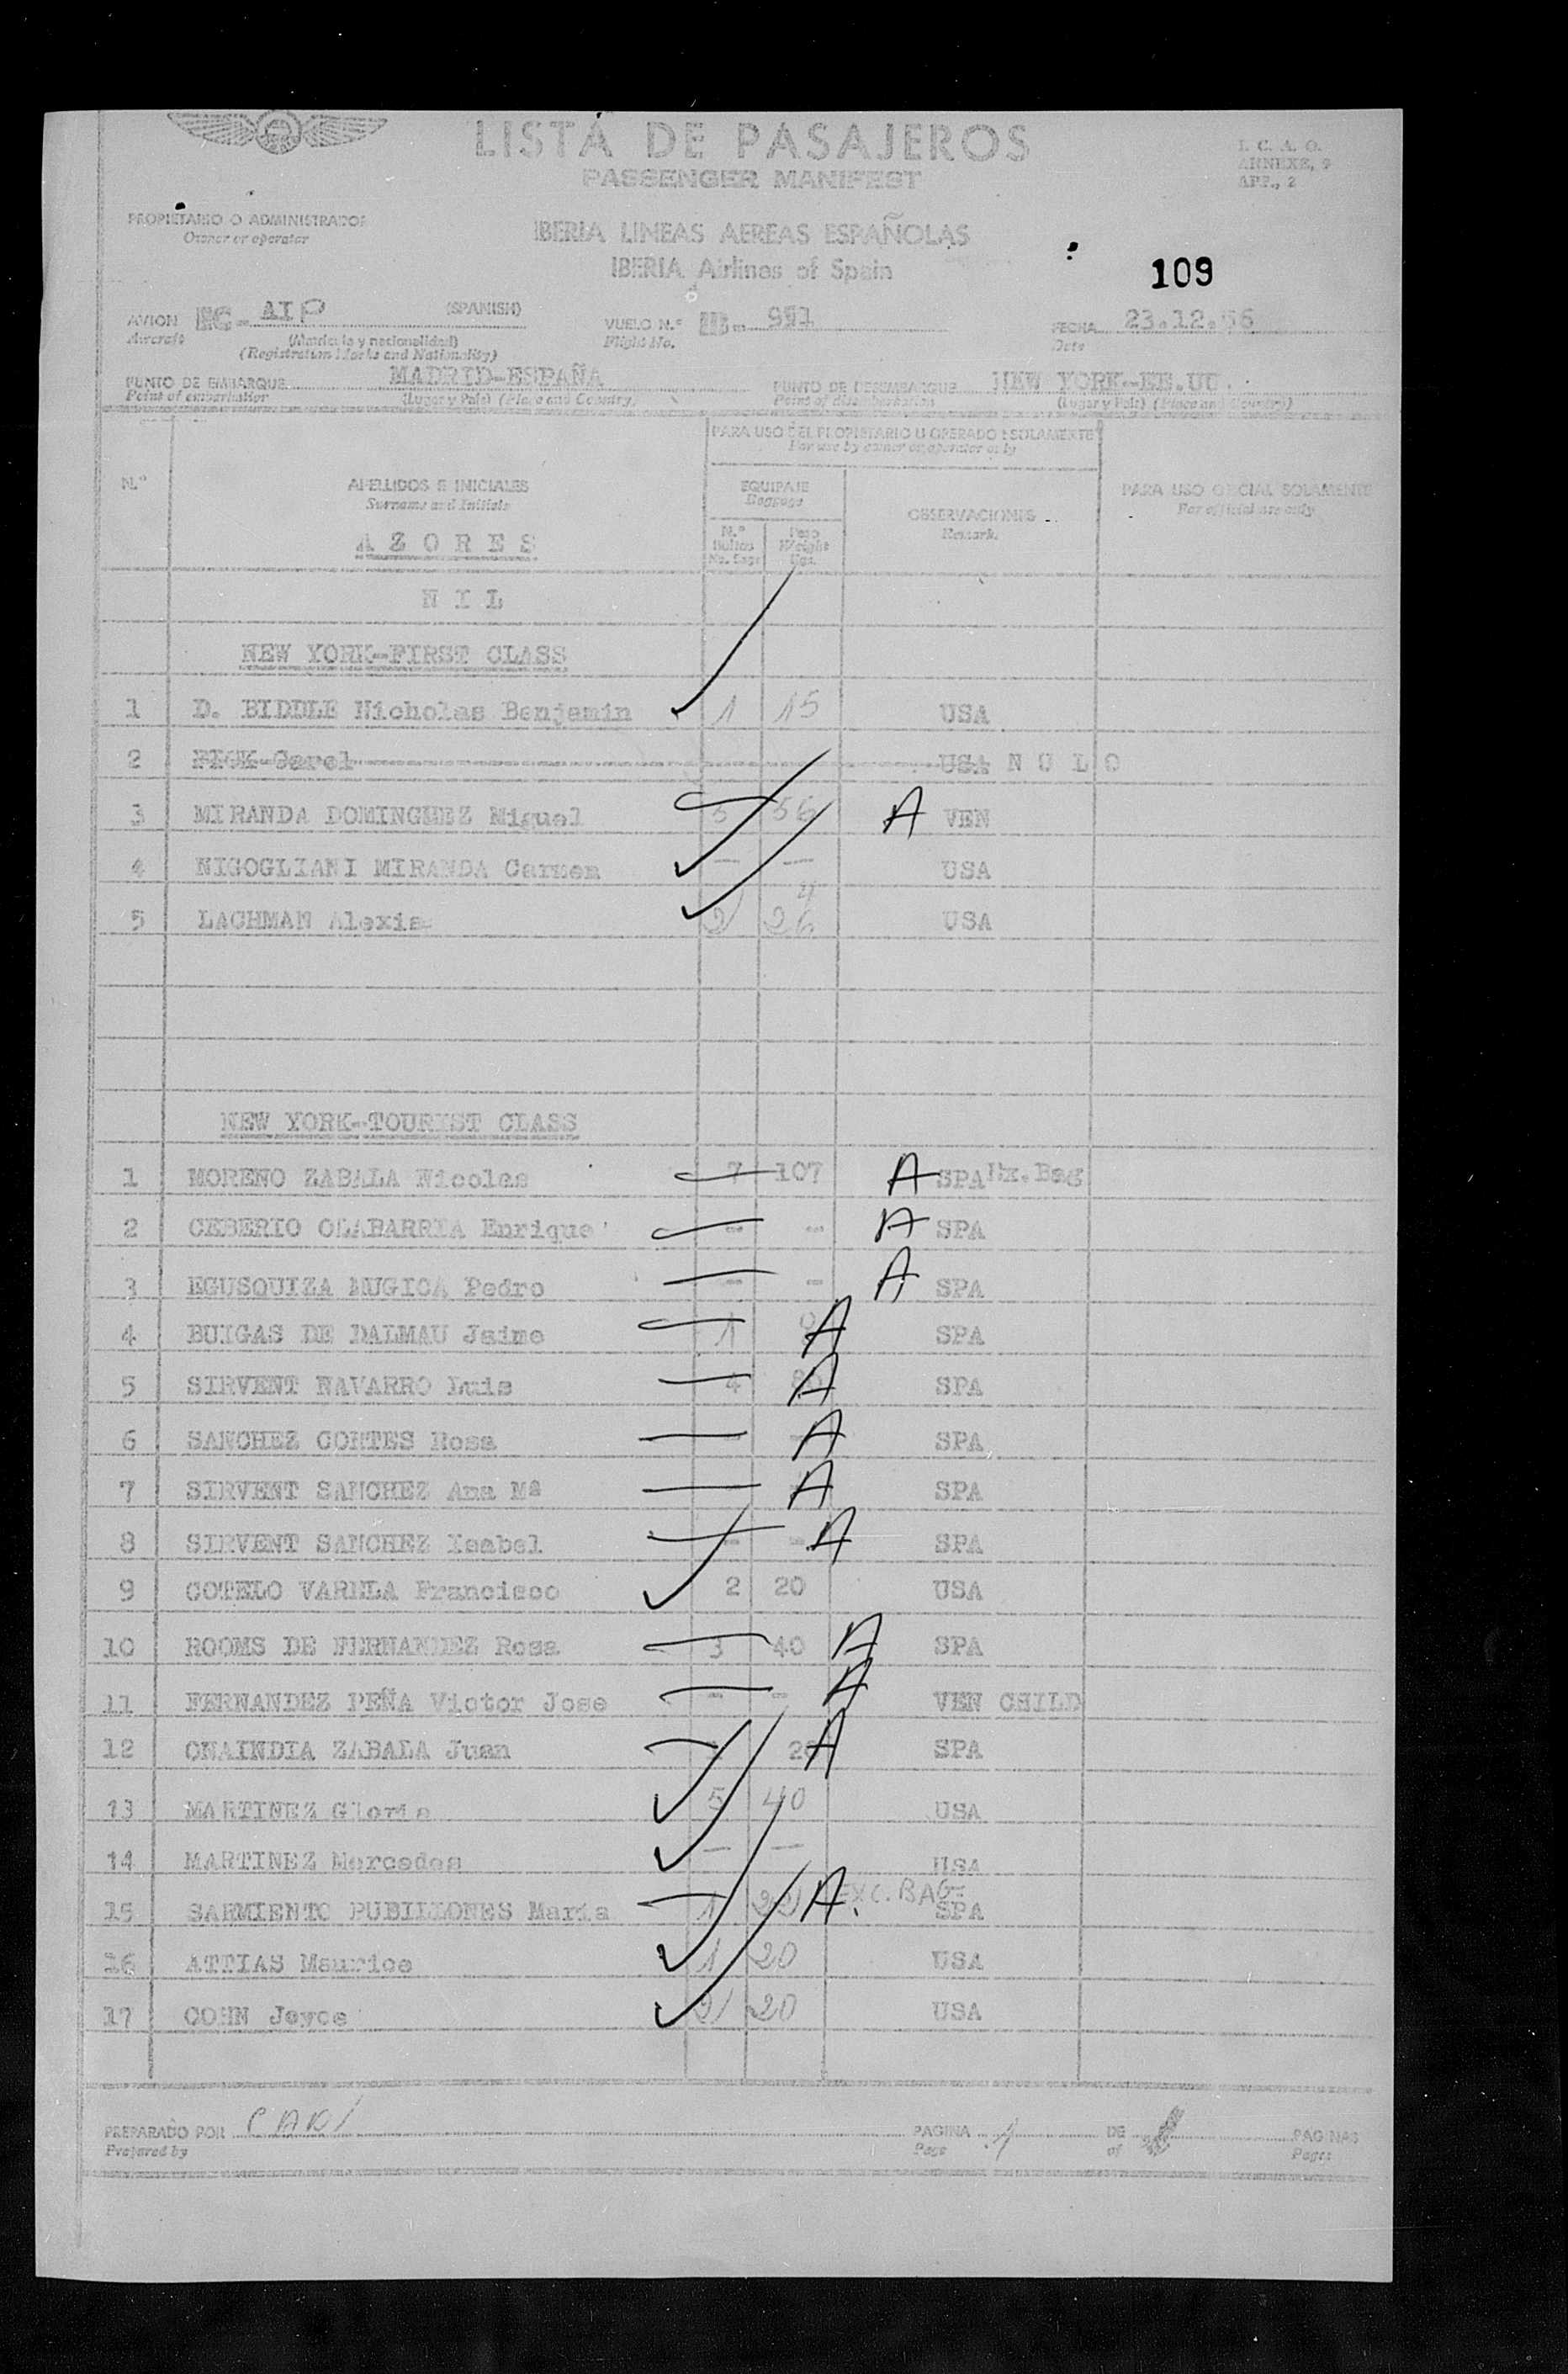 LISTA DE PASAJEROS
PASSENGER MANIFEST
I. C. A. O.
ANNEXE, 9
APP., 2
PROPIETARIO O ADMINISTRADOR
Owner or operator
IBERIA LINEAS AEREAS ESPAÑOLAS
IBERIA Airlines of Spain
109
AVION EC- AIP (SPANISH) VUELO N.º IB- 951 FECHA 23.12.56
Aircraft (Matrícula y nacionalidad) Flight No. Date
(Registration Marks and Nationality)
PUNTO DE EMBARQUE MADRID-ESPAÑA PUNTO DE DESEMBARQUE NEW YORK-EE.UU.
Point of embarkation (Lugar y País) (Place and Country) Point of disembarkation (Lugar y País) (Place and Country)
PARA USO DEL PROPIETARIO U OPERADOR SOLAMENTE
For use by owner or operator only
N.º APELLIDOS E INICIALES EQUIPAJE OBSERVACIONES PARA USO OFICIAL SOLAMENTE
Surname and Initials Baggage Remark. For official use only
AZORES N.º Bultos No. Bags Peso Weight Kgs.
NIL
NEW YORK-FIRST CLASS
1 D. BIDDLE Nicholas Benjamin 1 15 USA
2 PICK-Carol USA NOLO
3 MIRANDA DOMINGUEZ Miguel 5 56 A VEN
4 NIGOGLIANI MIRANDA Carmen — — USA
4
5 LACHMAN Alexis 2 26 USA
NEW YORK-TOURIST CLASS
1 MORENO ZABALA Nicolas 7 107 A SPA Ex.Bag
2 CEBERIO OLABARRIA Enrique - - A SPA
3 EGUSQUIZA MUGICA Pedro - - A SPA
4 BUIGAS DE DALMAU Jaime 1 A SPA
5 SIRVENT NAVARRO Luis 4 A SPA
6 SANCHEZ CORTES Rosa A SPA
7 SIRVENT SANCHEZ Ana Mª A SPA
8 SIRVENT SANCHEZ Isabel - - A SPA
9 COTELO VARELA Francisco 2 20 USA
10 ROOMS DE FERNANDEZ Rosa 3 40 A SPA
11 FERNANDEZ PEÑA Victor Jose - - A VEN CHILD
12 ONAINDIA ZABALA Juan A SPA
13 MARTINEZ Gloria 5 40 USA
14 MARTINEZ Mercedes — — USA
15 SARMIENTO PUBILLONES Maria 1 22 A. EXC. BAG= SPA
16 ATTIAS Maurice 1 20 USA
17 COHN Joyce 2 20 USA
PREPARADO POR PAGINA 1 DE PAGINAS
Prepared by Page of Pages